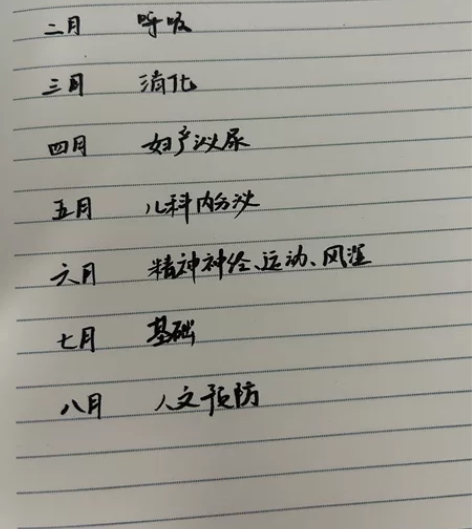 二月 呼吸
三月 消化
四月 妇产泌尿
五月 儿科内分泌
六月 精神神经、运动、风湿
七月 基础
八月 人文预防